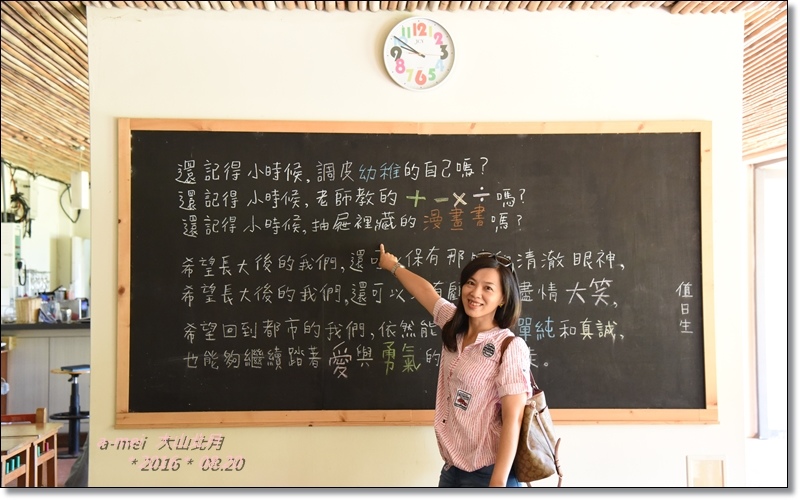 11 12 1 2 3 4 5 6 7 8 9 10
還記得小時候,調皮幼稚的自己嗎?
還記得小時候,老師教的+-×÷嗎?
還記得小時候,抽屜裡藏的漫畫書嗎?
希望長大後的我們,還可 保有那 清澈眼神,
希望長大後的我們,還可以 盡情大笑,
希望回到都市的我們,依然能 單純和真誠,
也能夠繼續踏著愛與勇氣的 。
值日生
a-mei 大山北月
*2016*08.20